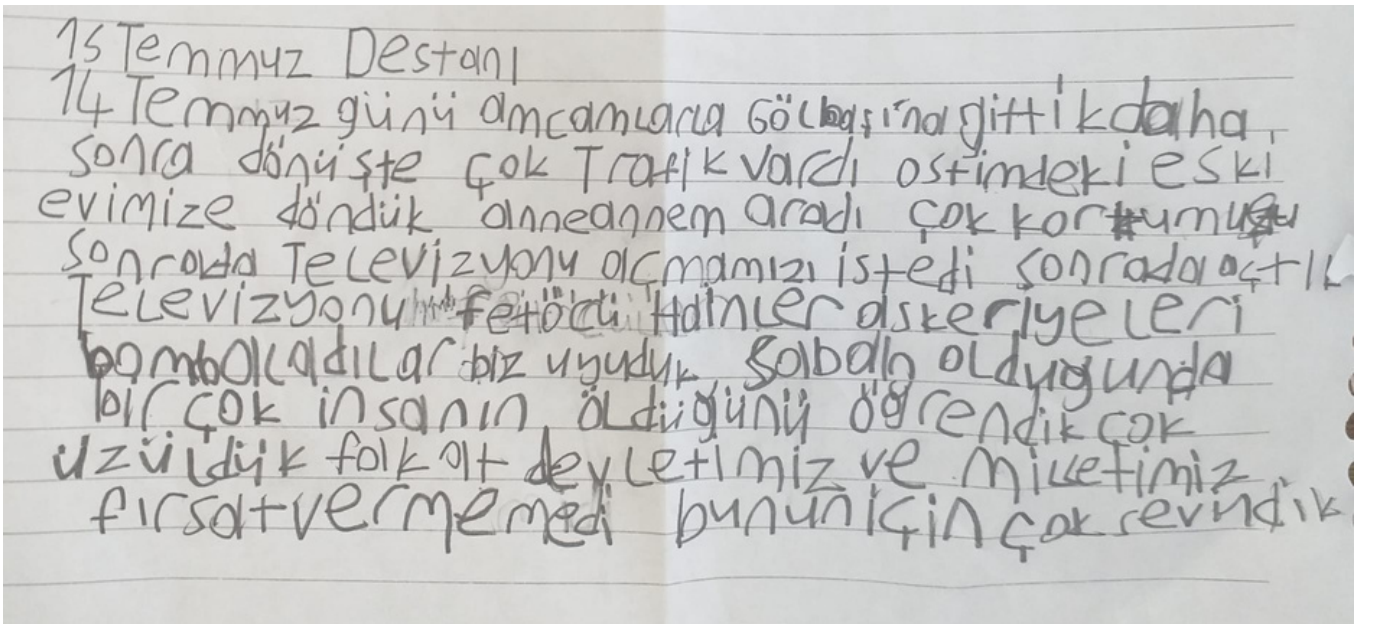 15 Temmuz Destanı
14 Temmuz günü amcamlarla Gölbaşı'na gittik daha
sonra dönüşte çok Trafik vardı ostimdeki eski
evimize döndük anneannem aradı çok korkmuştu
sonrada Televizyonu açmamızı istedi sonrada açtık
Televizyonu fetöcü Hainler askeriyeleri
bombaladılar biz uyuduk sabah olduğunda
bir çok insanın öldüğünü öğrendik çok
üzüldük fakat devletimiz ve milletimiz
fırsat vermemedi bunun için çok sevindik